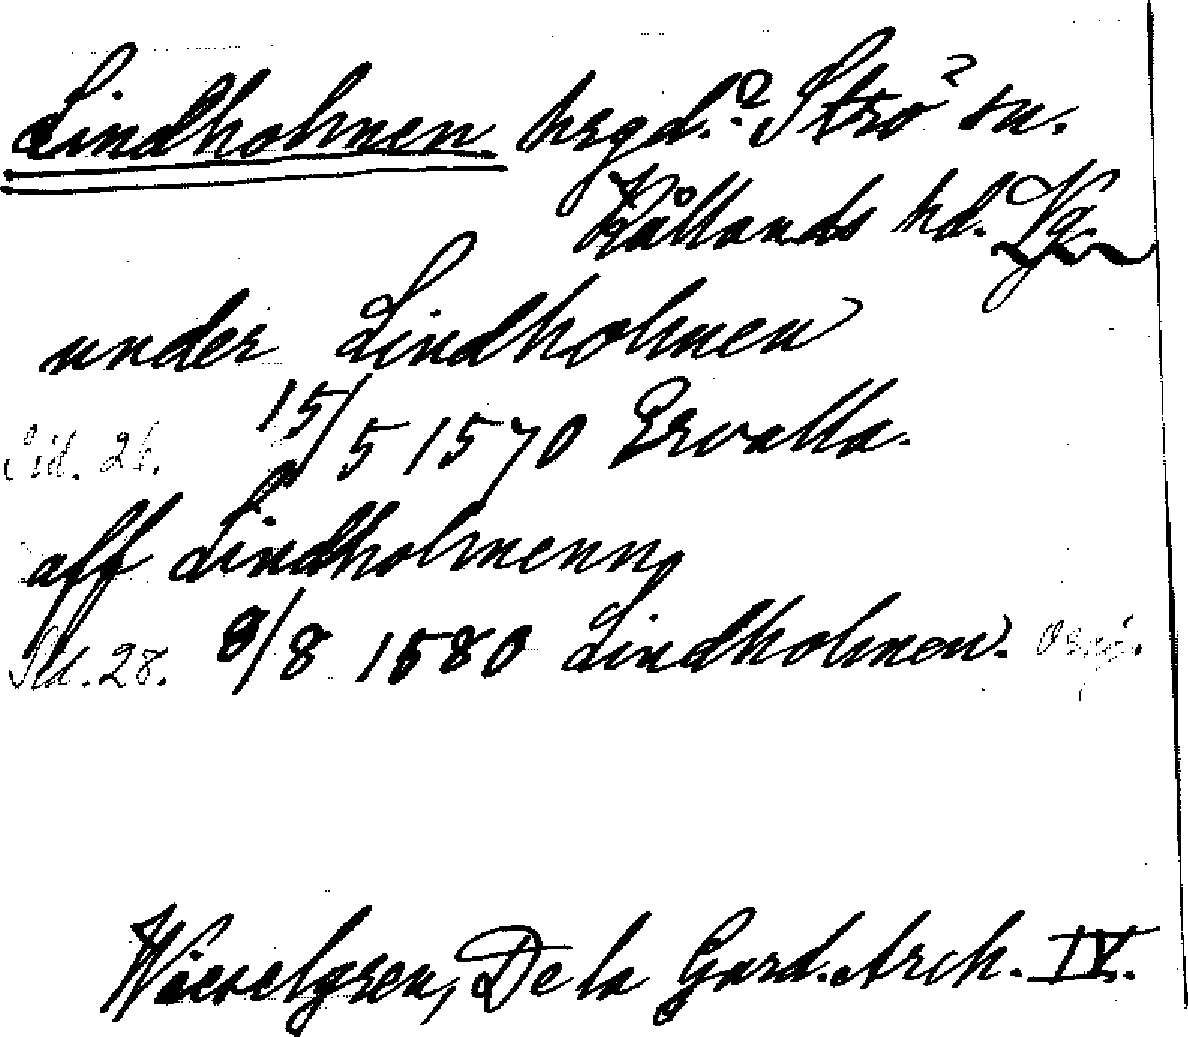 Lindholmen hrgd.? Strö? sn.
Kållands hd. Vg
under Lindholmen
Sid. 26. 15/5 1570 Ervalla.
aff Lindholmenn
Sid. 28. 8/8 1580 Lindholmen.
Wieselgren, De la Gard. Arch. IV.